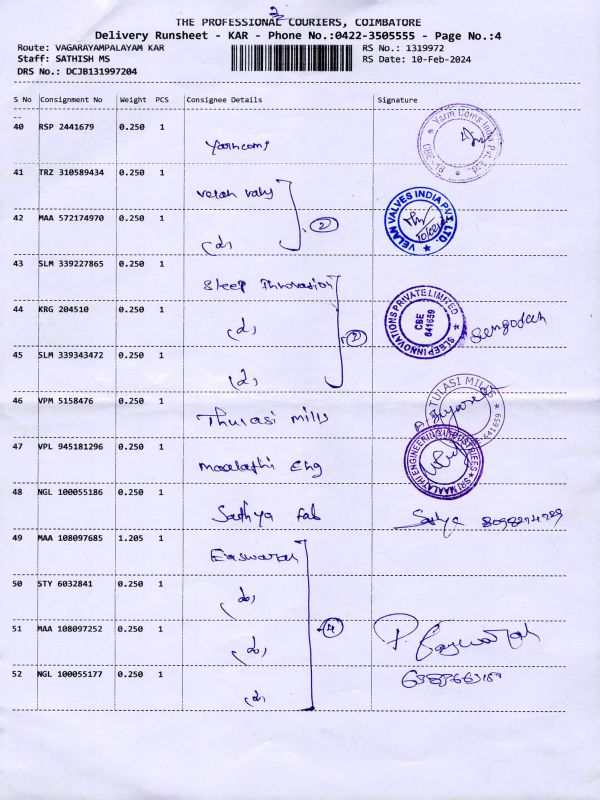 2
THE PROFESSIONAL COURIERS, COIMBATORE
Delivery Runsheet - KAR - Phone No.:0422-3505555 - Page No.:4
Route: VAGARAYAMPALAYAM KAR RS No.: 1319972
Staff: SATHISH MS RS Date: 10-Feb-2024
DRS No.: DCJB131997204
S No Consignment No Weight PCS Consignee Details Signature
--
40 RSP 2441679 0.250 1
Yarncoms
Yarn Coms India Pvt. Ltd. CBE-18
41 TRZ 310589434 0.250 1
Velan valv
42 MAA 572174970 0.250 1 (2)
VELAN VALVES INDIA PVT. LTD.
(d)
43 SLM 339227865 0.250 1
Sleep Innovation
44 KRG 204510 0.250 1
SLEEP INNOVATIONS PRIVATE LIMITED CBE 641659
(d)
45 SLM 339343472 0.250 1
(d)
46 VPM 5158476 0.250 1
Thulasi mills
TULASI MILLS 641659
47 VPL 945181296 0.250 1
Maalathi Eng
SRI MAALATHI ENGINEERING INDUSTRIES
48 NGL 100055186 0.250 1
Sathya Fab Sathya
49 MAA 108097685 1.205 1
Easwaran
50 STY 6032841 0.250 1
(do)
51 MAA 108097252 0.250 1 (4)
(do)
P. Easwaran
52 NGL 100055177 0.250 1
(d)